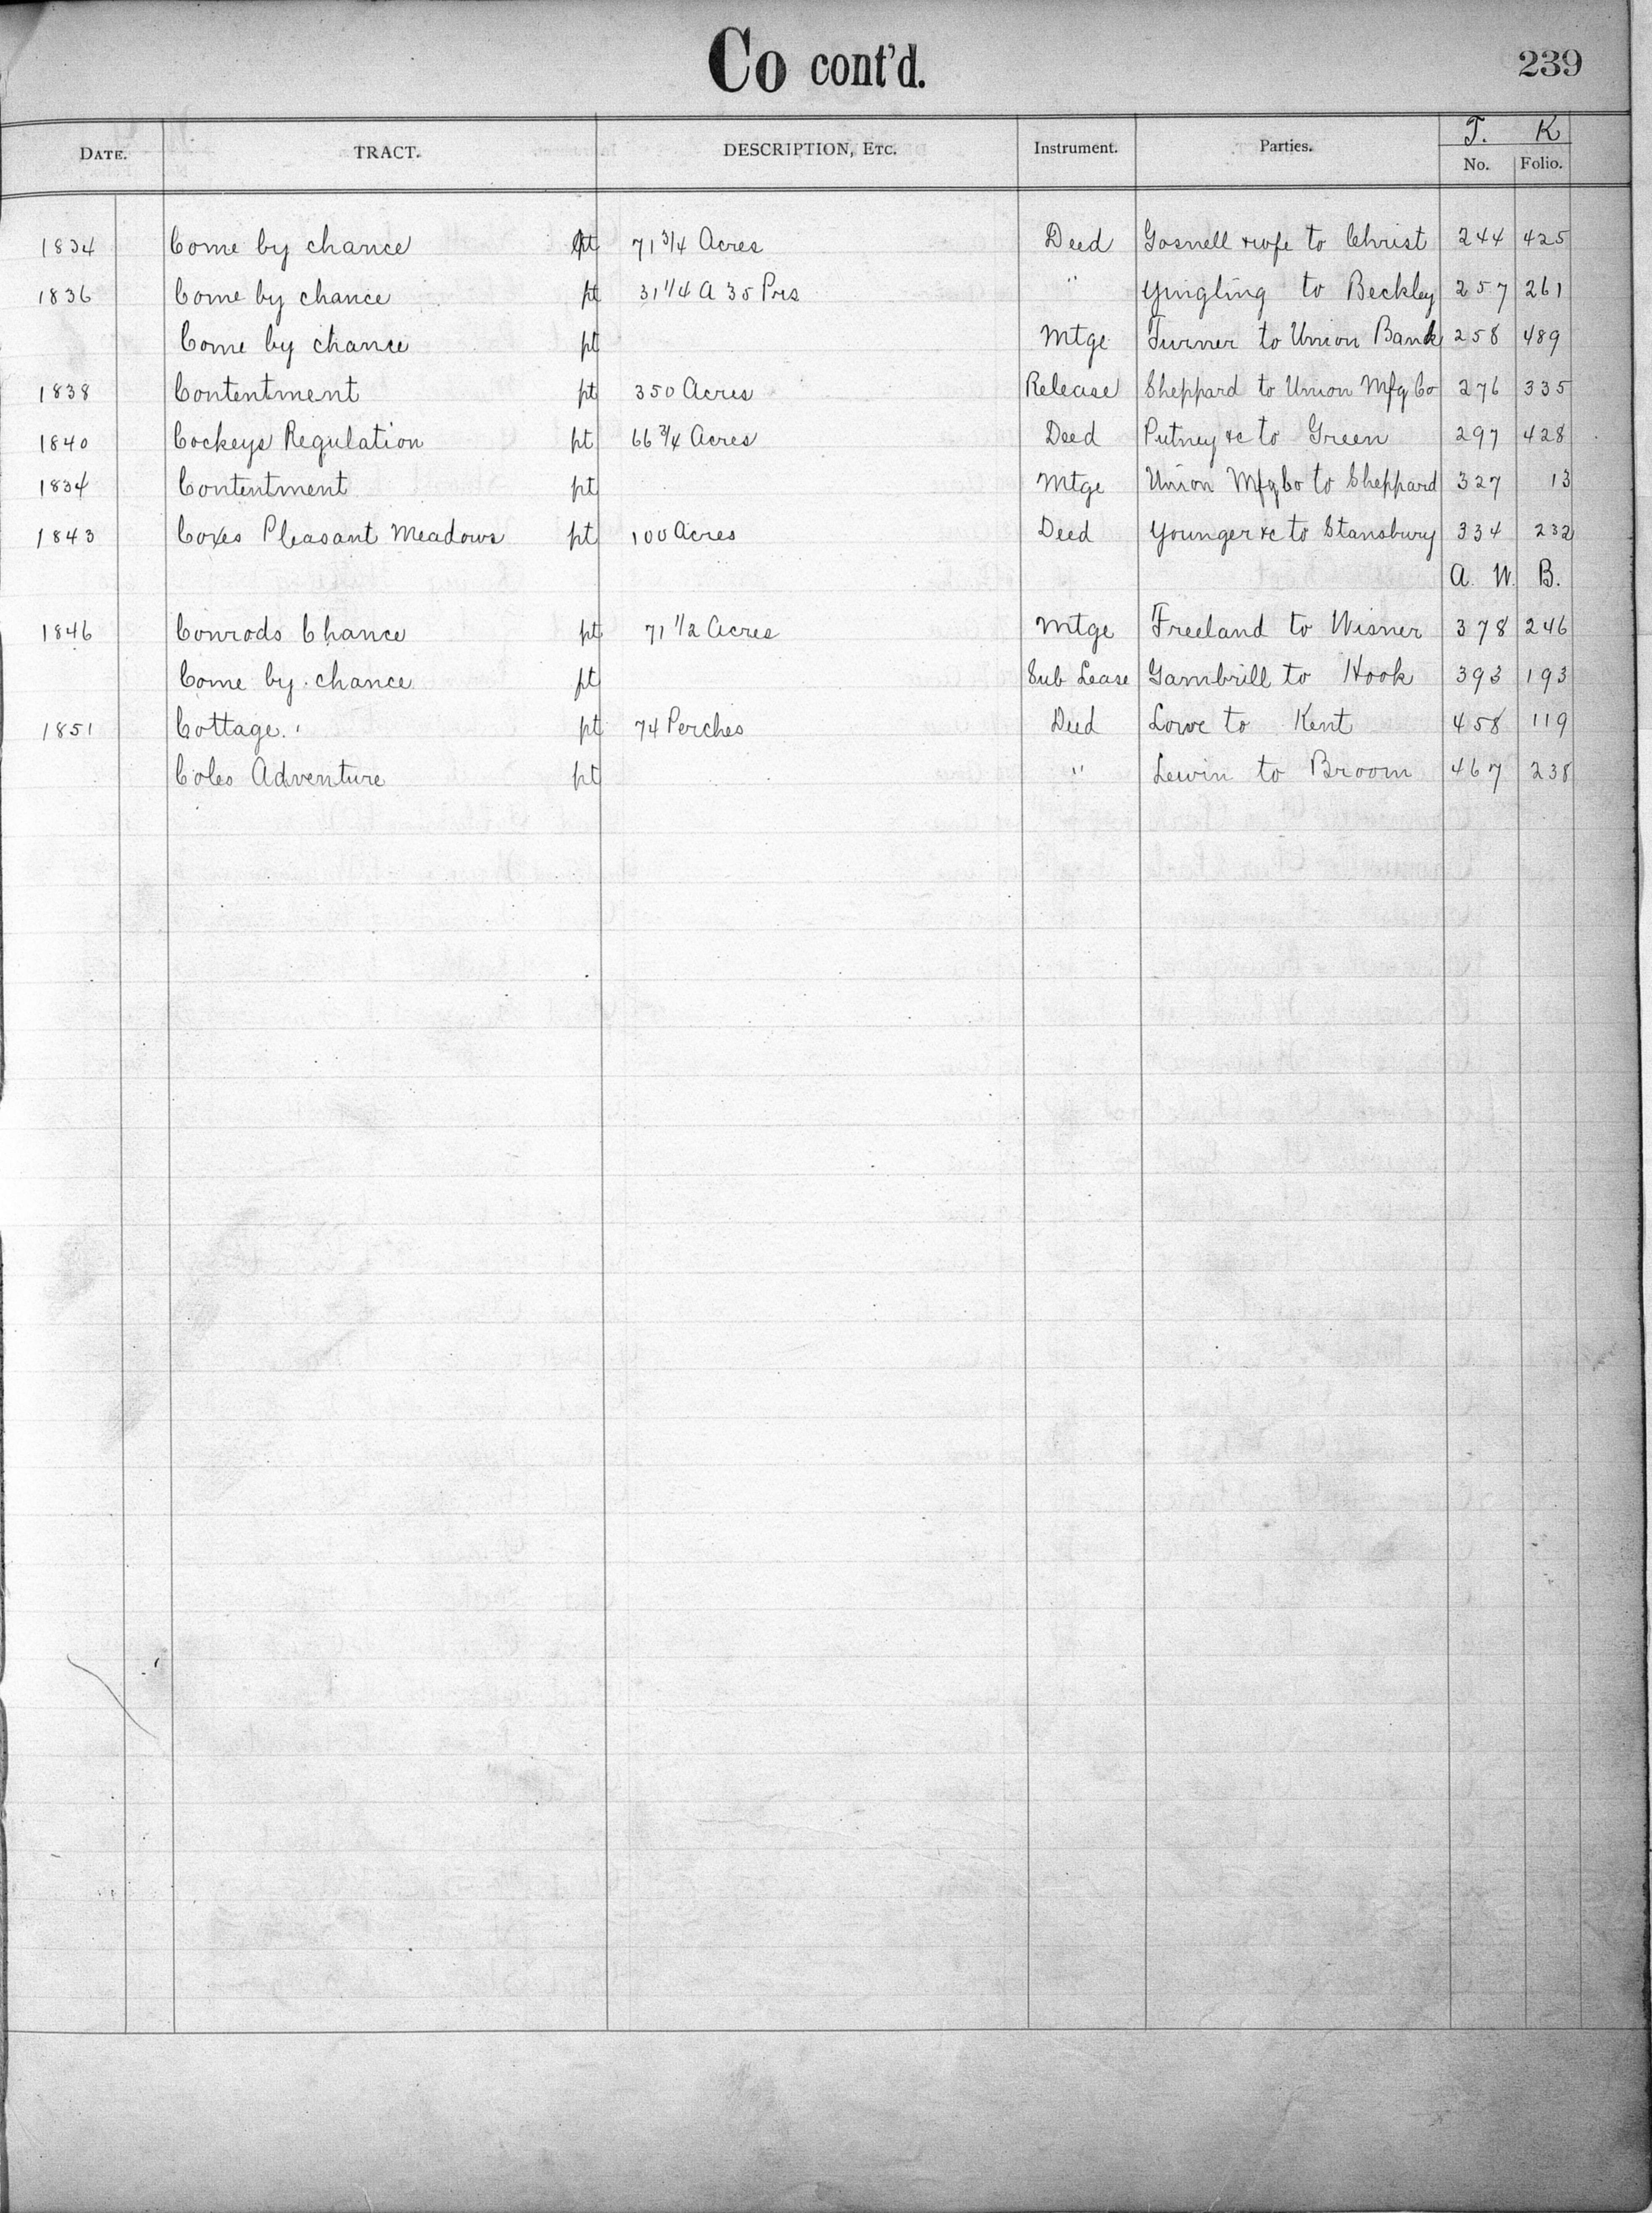 Co cont'd.
239
DATE. TRACT. DESCRIPTION, ETC. Instrument. Parties. T. K
No. Folio.
1834 Come by chance pt 71 3/4 Acres Deed Gosnell & wife to Christ 244 425
1836 Come by chance pt 31 1/4 A 35 Prs " Yingling to Beckley 257 261
Come by chance pt Mtge Turner to Union Bank 258 489
1838 Contentment pt 350 Acres Release Sheppard to Union Mfg Co 276 335
1840 Cockeys Regulation pt 66 3/4 Acres Deed Putney &c to Green 297 428
1834 Contentment pt Mtge Union Mfg Co to Sheppard 327 13
1843 Coxes Pleasant Meadows pt 100 Acres Deed Younger &c to Stansbury 334 232
A. W. B.
1846 Conrods Chance pt 71 1/2 Acres Mtge Freeland to Wisner 378 246
Come by chance pt Sub Lease Gambrill to Hook 393 193
1851 Cottage pt 74 Perches Deed Lowe to Kent 458 119
Coles Adventure pt " Lewin to Broom 467 238